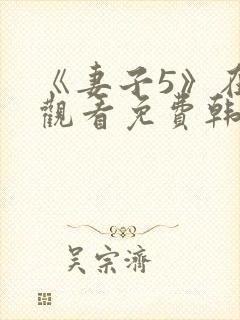 《妻子5》在
觀看免費韩
吴宗濟